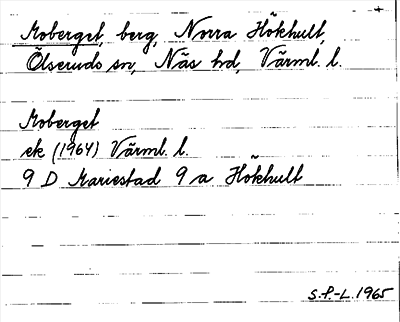 Moberget, berg, Norra Hökhult,
Ölseruds sn, Näs hd, Värml. l.
Moberget
ek (1964) Värml. l.
9 D Mariestad 9 a Hökhult
S.P.-L. 1965